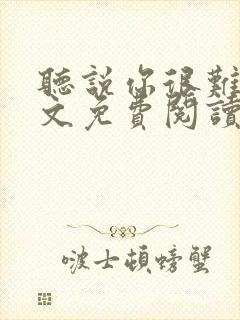 聽說你很難
文免費閱讀
啵士頓螃蟹